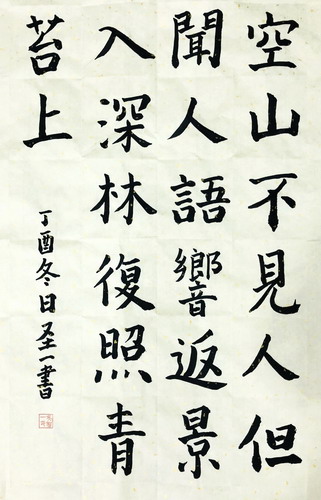 空山不見人但
聞人語響返景
入深林復照青
苔上
丁酉冬日圣一書